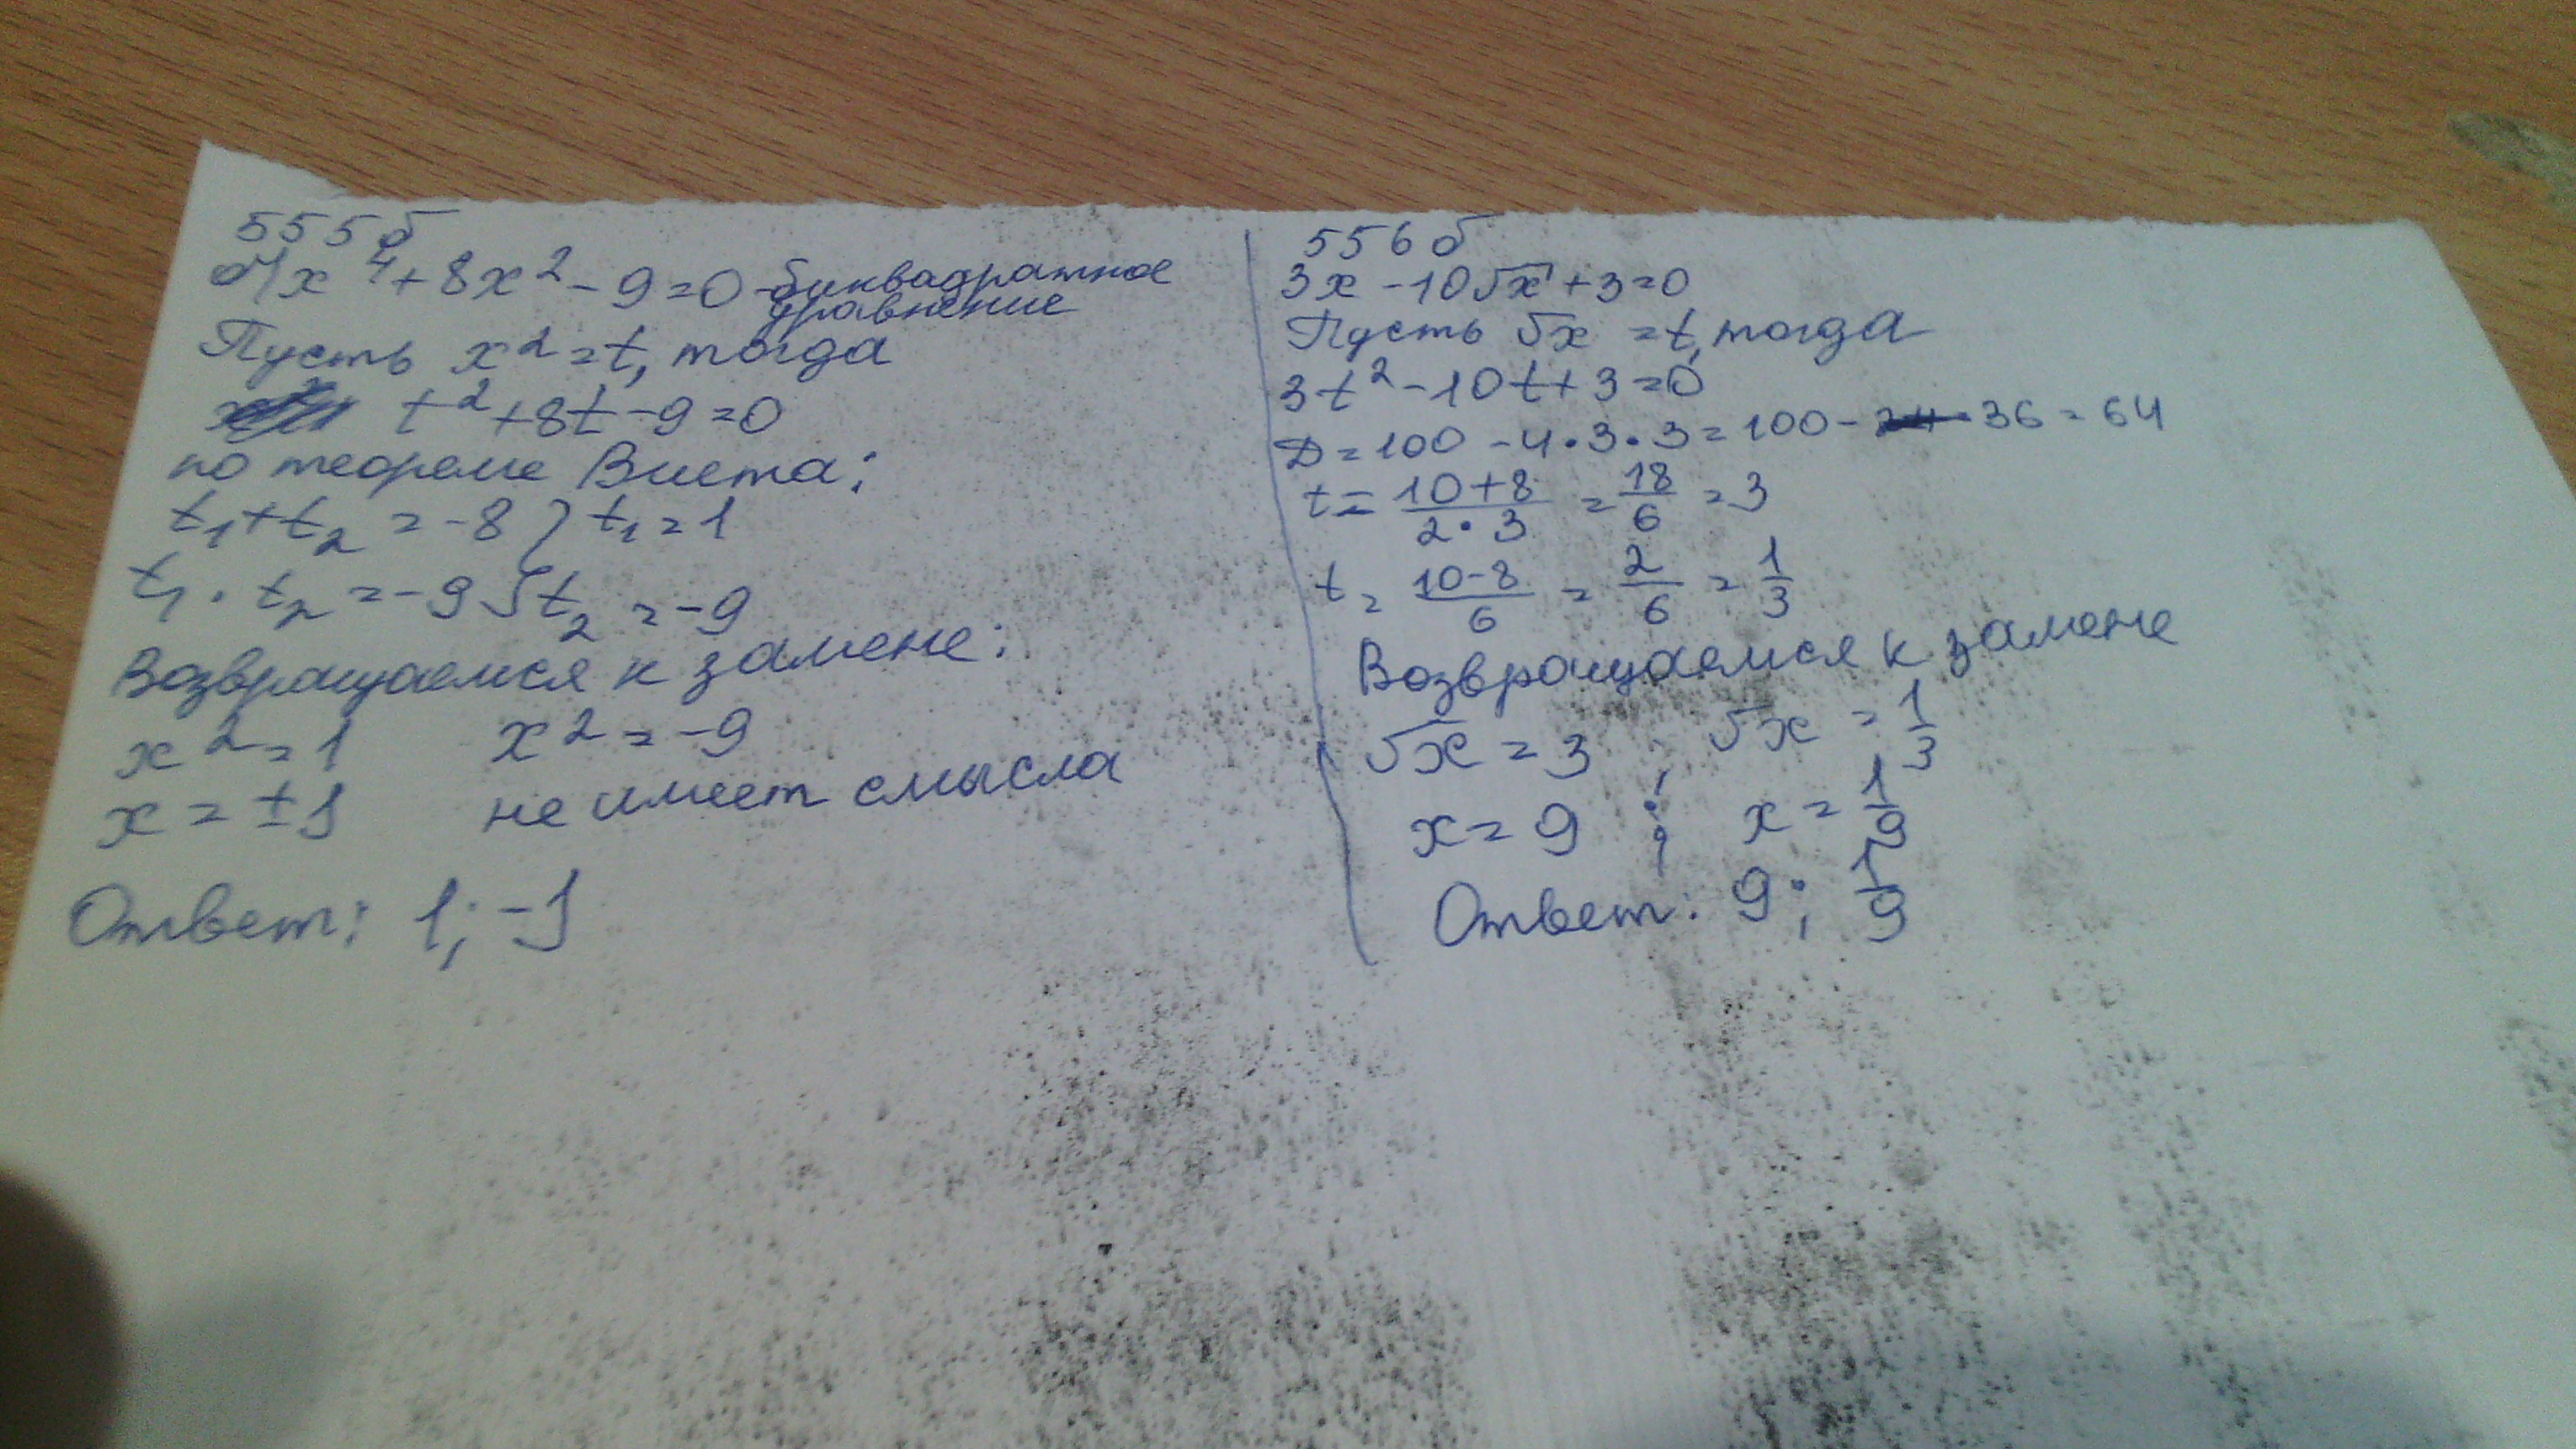 555 б
б) x⁴ + 8x² - 9 = 0 - биквадратное
уравнение
Пусть x² = t, тогда
t² + 8t - 9 = 0
по теореме Виета:
t₁ + t₂ = -8 } t₁ = 1
t₁ · t₂ = -9 } t₂ = -9
Возвращаемся к замене:
x² = 1 x² = -9
x = ±1 не имеет смысла
Ответ: 1; -1
556 б
3x - 10√x + 3 = 0
Пусть √x = t, тогда
3t² - 10t + 3 = 0
D = 100 - 4·3·3 = 100 - 36 = 64
t = (10+8)/(2·3) = 18/6 = 3
t = (10-8)/6 = 2/6 = 1/3
Возвращаемся к замене
√x = 3 ; √x = 1/3
x = 9 ; x = 1/9
Ответ: 9; 1/9